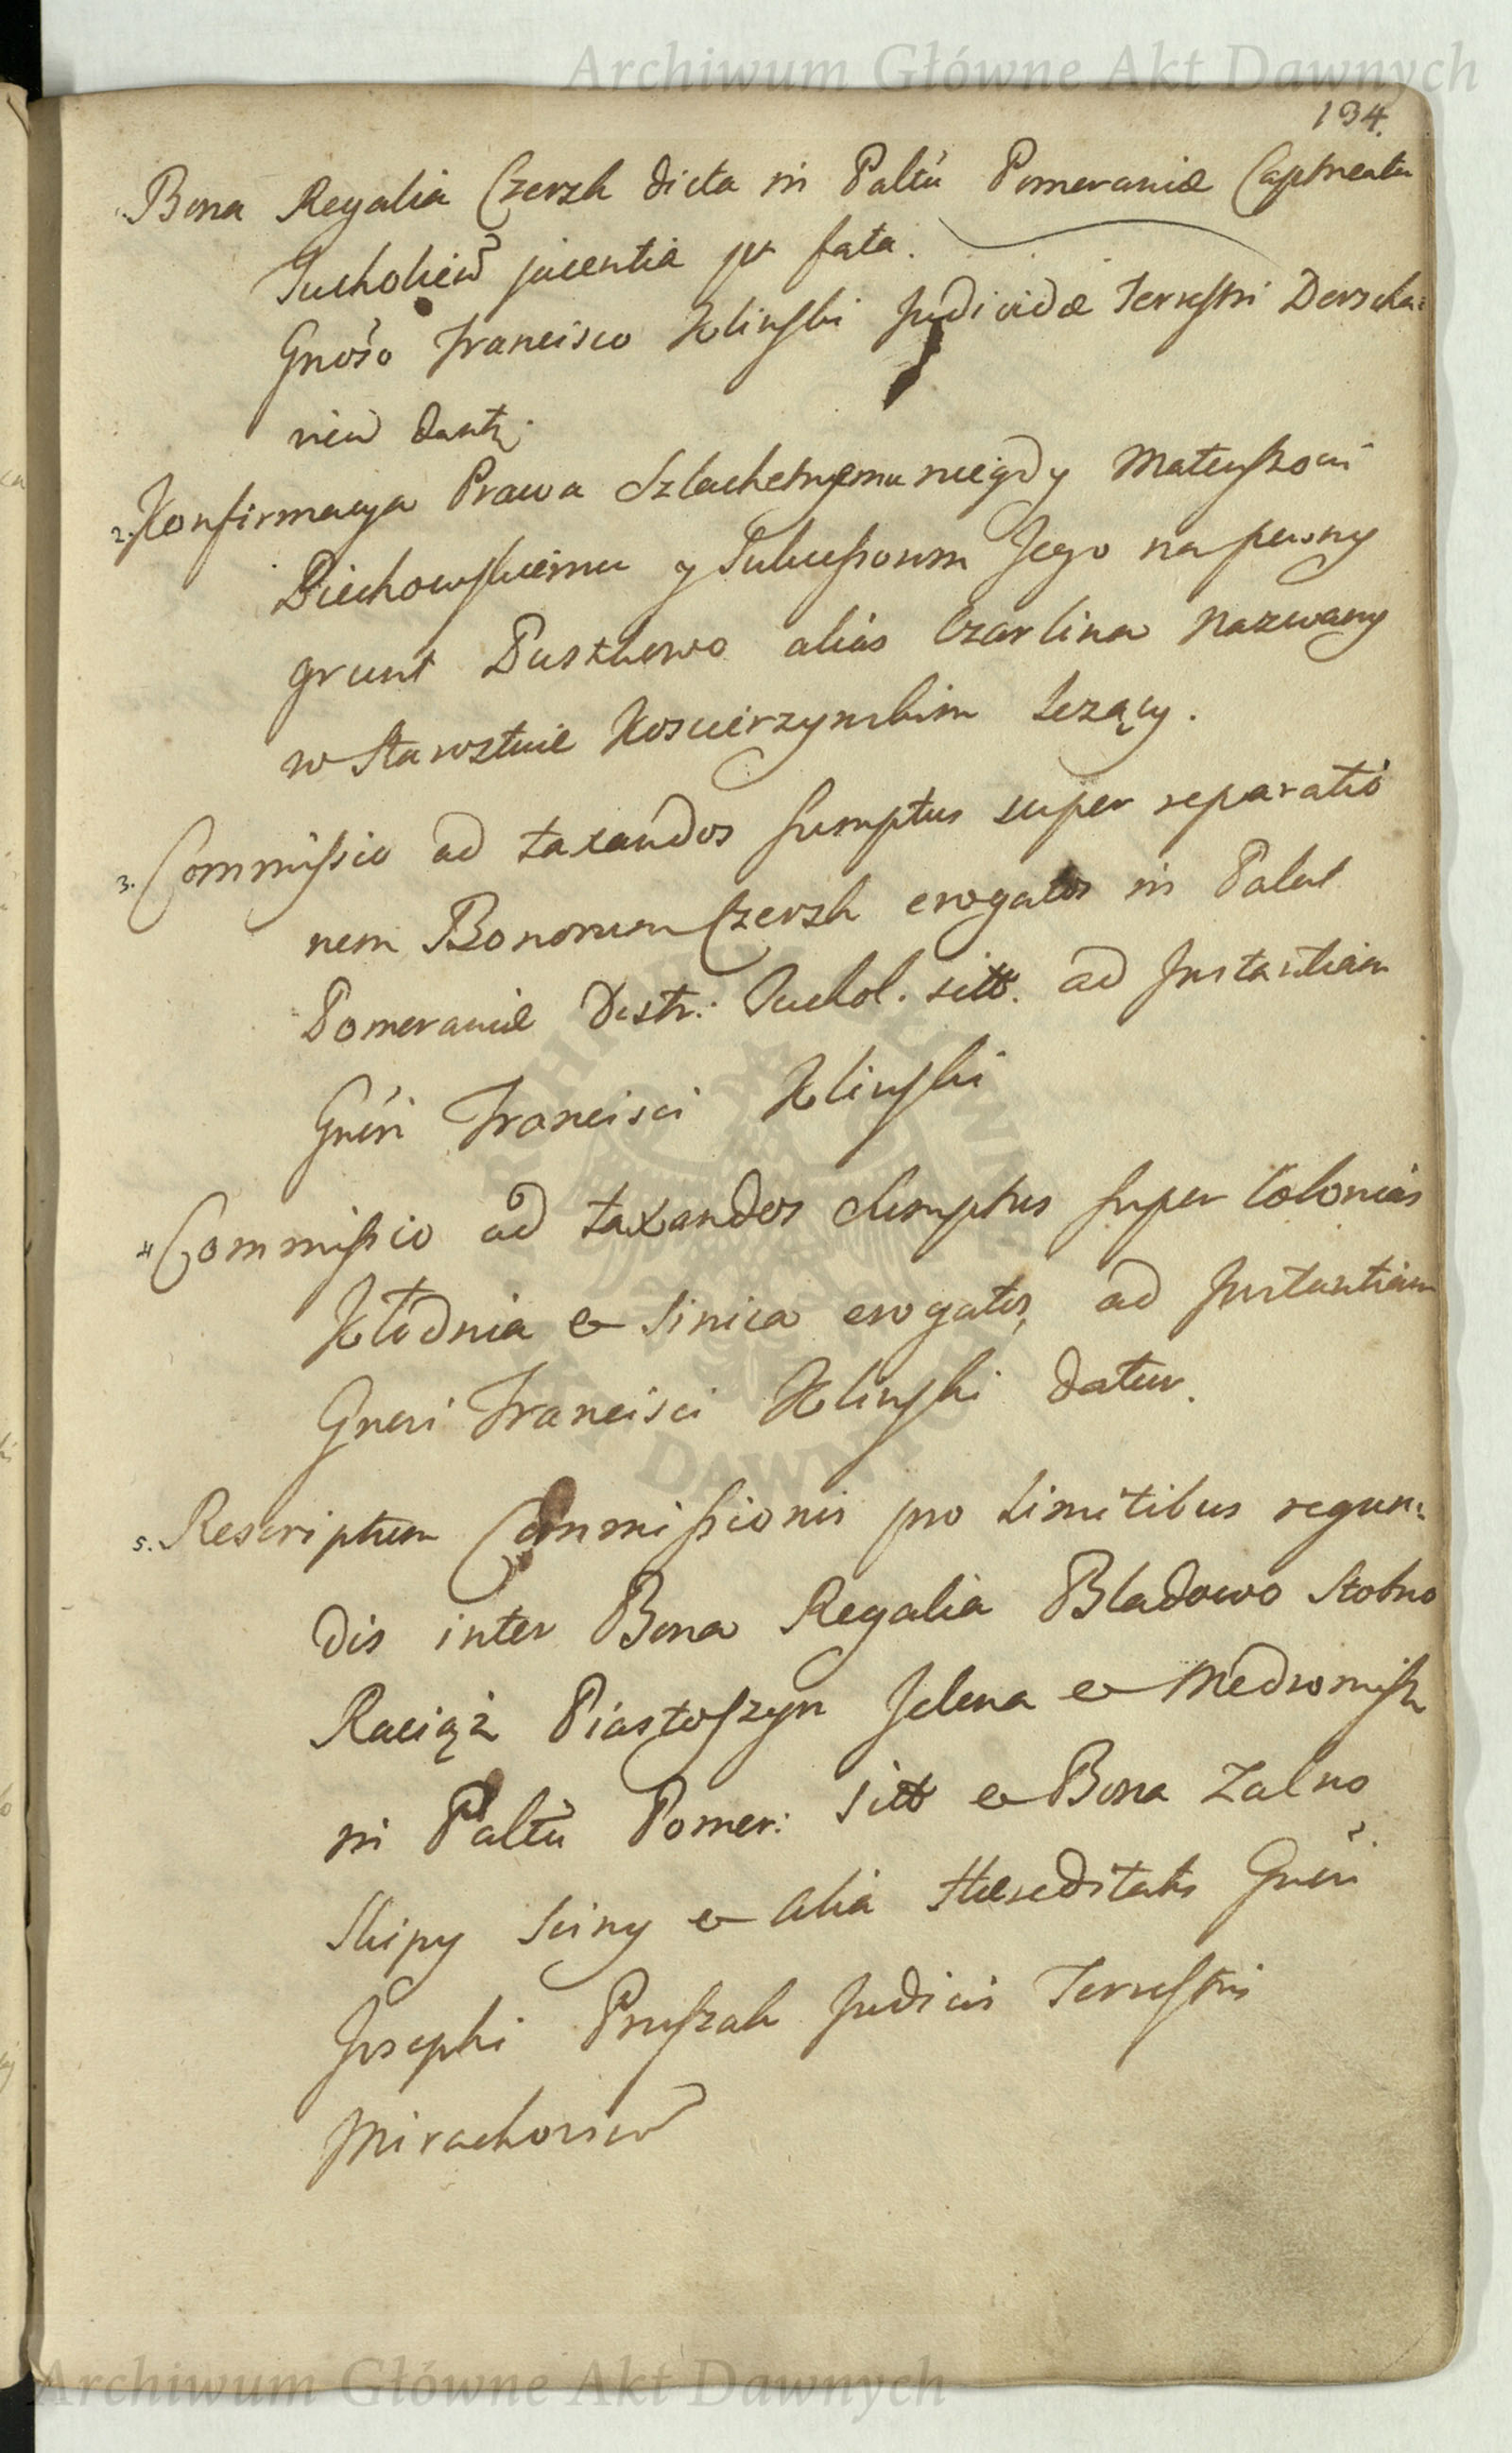 Archiwum Główne Akt Dawnych
134.
Bona Regalia Czersk dicta in Paltũ Pomeraniæ Captneatu
Tucholien jacentia pr fata.
Gnoso Francisco Klinski Judicidæ Terrestri Derscha=
vien dantr.
2. Konfirmacya Prawa Szlachetnemu niegdy Mateuszowi
Piechowskiemu y Sukcessorom Jego na pewny
grunt Pustkowo alias Czarlina nazwany
w Starostwie Koscierzynskim Lezący.
3. Commissio ad taxandos sumptus super reparatio
nem Bonorum Czersk erogatos in Palat
Pomeraniæ Distr: Tuchol. sitt. ad Instantiam
Gnẽri Francisci Klinski
4 Commissio ad taxandos Sumptus super Colonias
Kłodnia & Sinica erogatos, ad Instantiam
Gneri Francisci Klinski datur.
5. Rescriptum Commissionis pro Limitibus regun=
dis inter Bona Regalia Bladowo Stobno
Raciąż Piastoszyn Jelena & Mędromisz
in Paltũ Pomer: sitt & Bona Zalno
Slupy Sciny & alia Hæreditatis Gnẽri
Josephi Pruszak Judicis Terrestris
Mirachovien
ARCHIWUM GŁÓWNE AKT DAWNYCH
Archiwum Główne Akt Dawnych